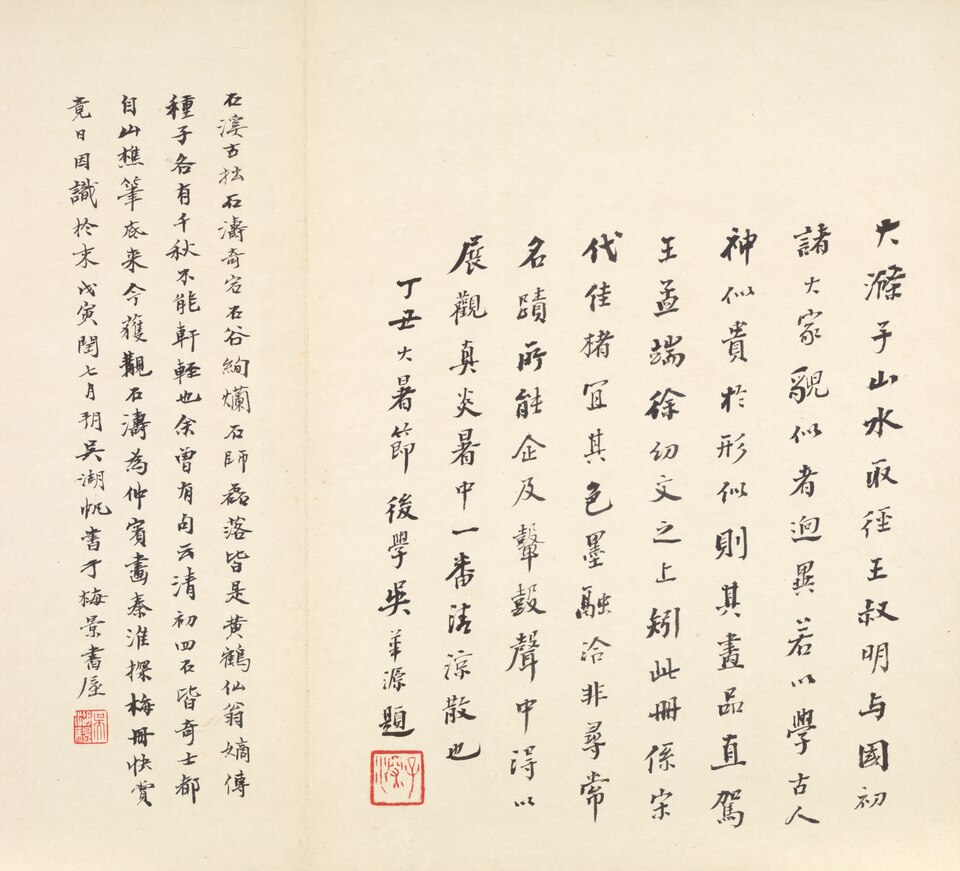 大滌子山水取徑王叔明与國初
諸大家貌似者迥異若以學古人
神似貴於形似則其畫品直駕
王孟端徐幼文之上矧此冊係宋
代佳楮宜其色墨融洽非尋常
名蹟所能企及鼙鼓聲中得以
展觀真炎暑中一番清涼散也
丁丑大暑節後學吳華源題
子深
石溪古拙石濤奇宕石谷絢爛石師磊落皆是黃鶴仙翁嫡傳
種子各有千秋不能軒輊也余曾有句云清初四石皆奇士都
自山樵筆底来今獲觀石濤為仲賓畫秦淮探梅冊快賞
竟日因識於末戊寅閏七月朔吳湖帆書于梅景書屋